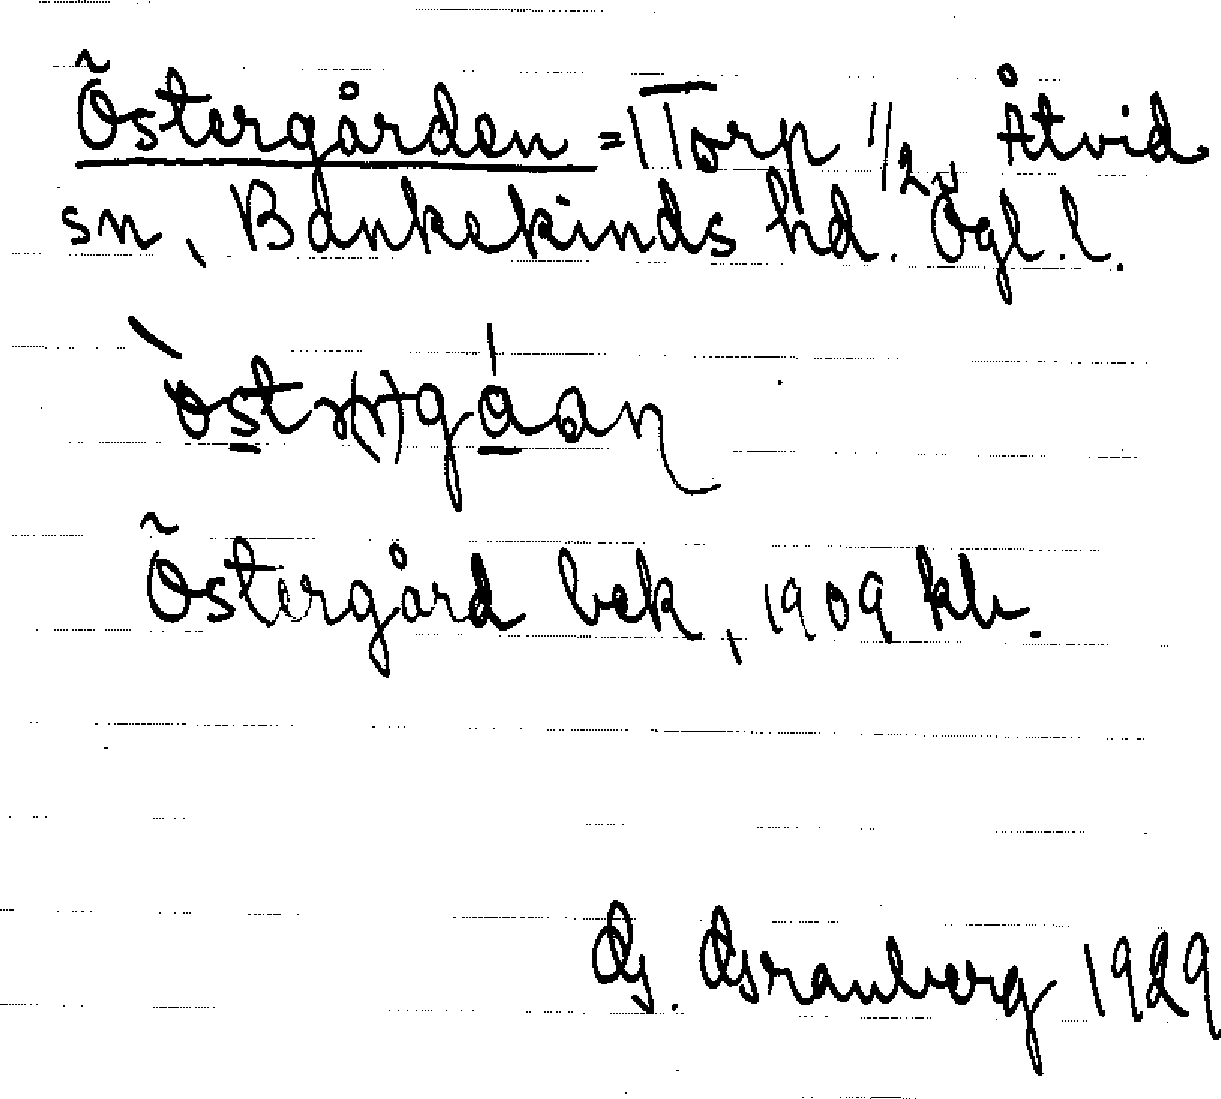 Östergården = Torp 1/2, Åtvid
sn, Bankekinds hd. Ögl. l.
Östergård bek, 1909 kb.
G. Granberg 1929